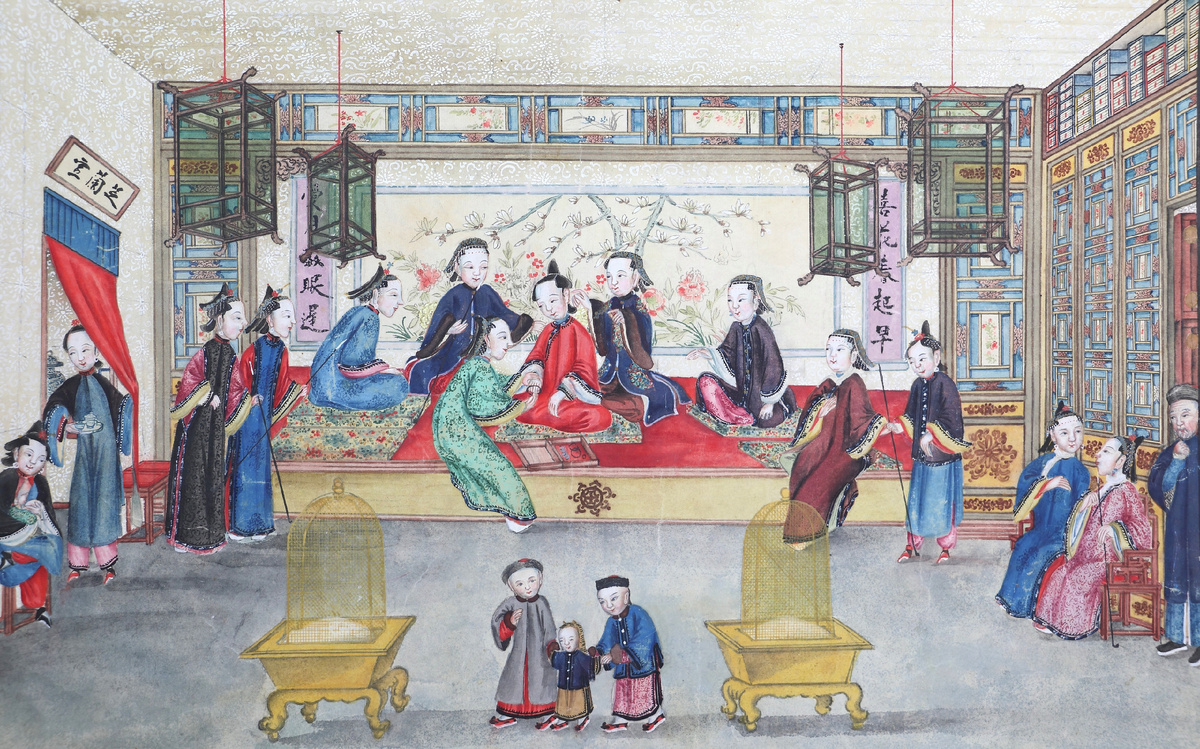 芝蘭室
喜花春起早
愛月眠遲